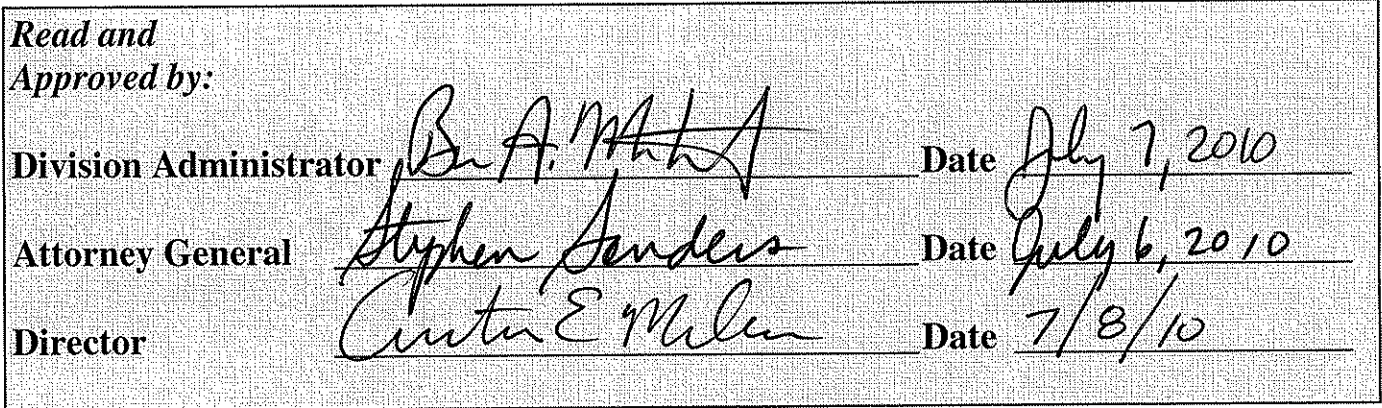 Read and
Approved by:
Division Administrator B A. Date July 7, 2010
Attorney General Stephen Sanders Date July 6, 2010
Director E Date 7/8/10